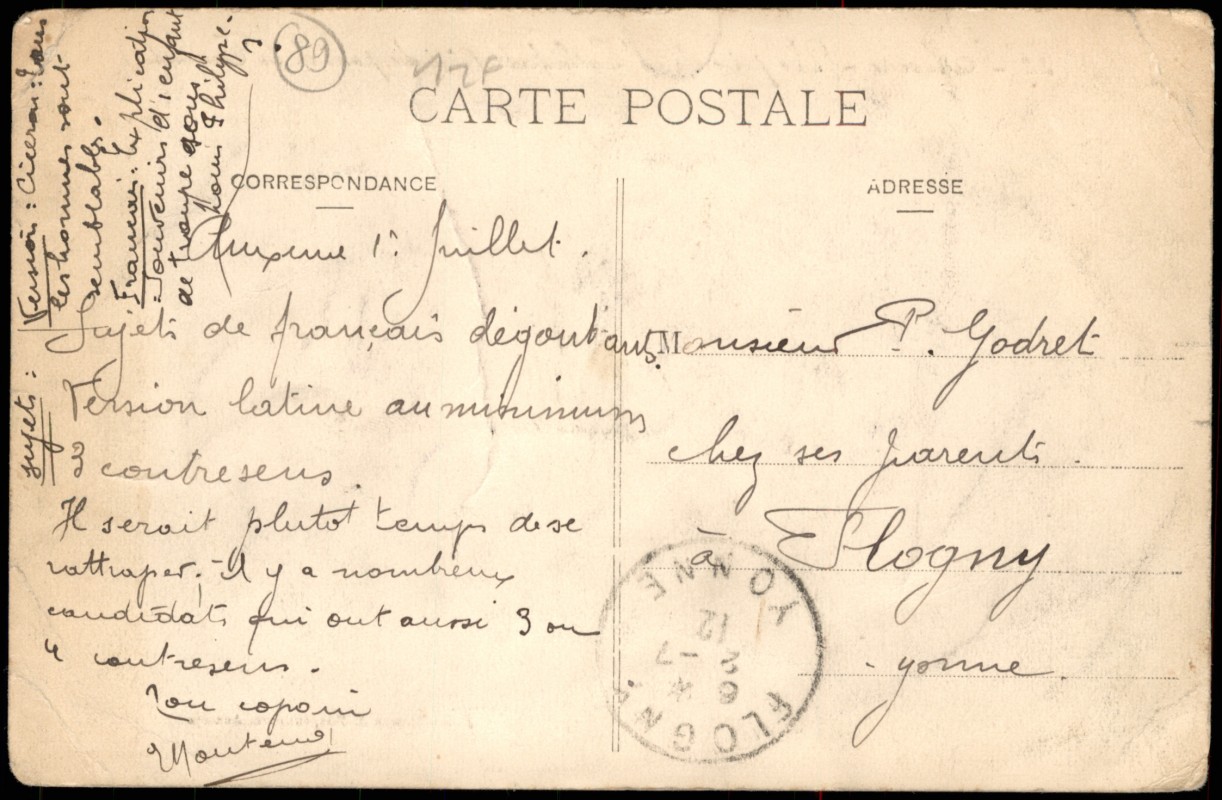 89
CARTE POSTALE
CORRESPONDANCE
ADRESSE
1er Juillet.
Sujets de français dégoutants.
Version latine au minimum
3 contresens.
Il serait plutot temps de se
rattraper. Il y a nombreux
candidats qui ont aussi 3 ou
4 contresens.
Ton copain
sujets :
Version : Ciceron : Tous
les hommes sont
semblables.
Français : Explication
Souvenirs d'enfant
de troupe sous
Louis Philippe.
Monsieur P. Godret
chez ses parents.
à Flogny
- yonne
FLOGNY
YONNE
6 *
2 - 7
12